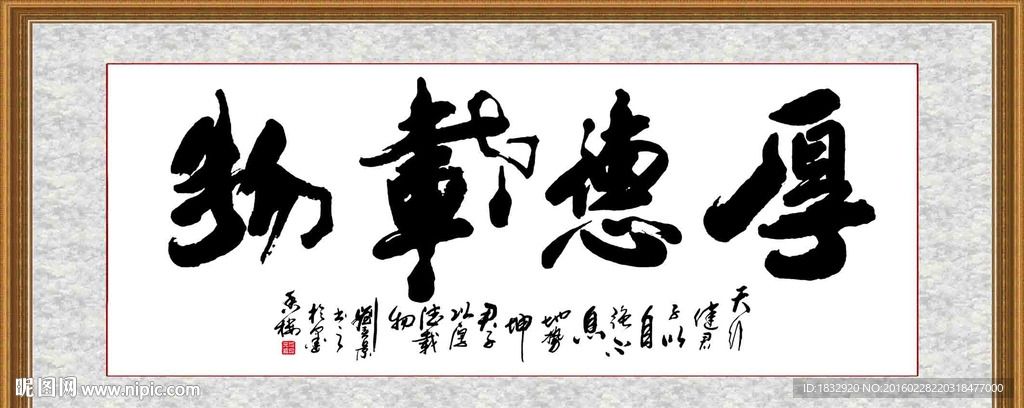 厚德载物
天行
健君
子以
自
强不
息
地势
坤
君子
以厚
德载
物
刘景
书之
於墨
香楼
昵图网 www.nipic.com
ID:1832920 NO:20160228220318477000